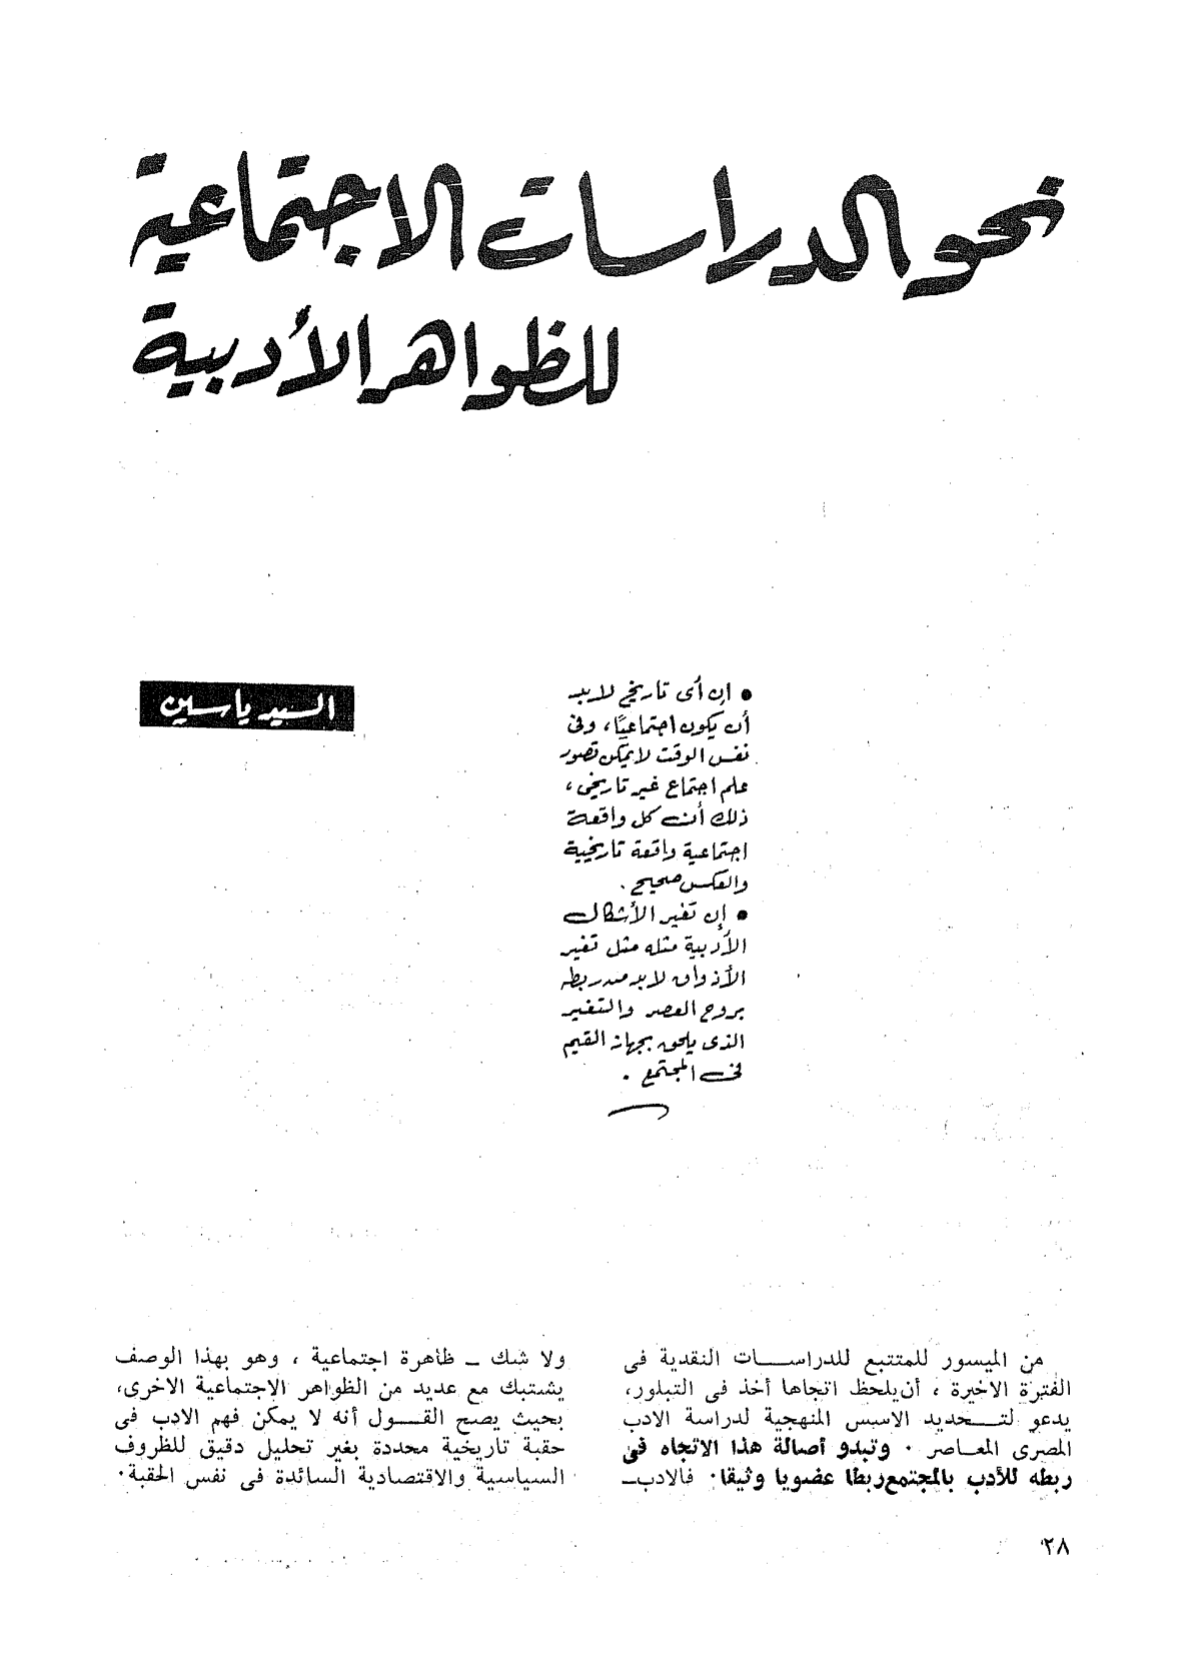 نحو الدراسات الاجتماعية
للظواهر الأدبية
السيد ياسين
● إن أى تاريخ لابد
أن يكون اجتماعيًا، وفى
نفس الوقت لا يمكن تصور
علم اجتماع غير تاريخى،
ذلك أن كل واقعة
اجتماعية واقعة تاريخية
والعكس صحيح .
● إن تغير الأشكال
الأدبية مثله مثل تغير
الأذواق لابد من ربطه
بروح العصر والتغير
الذى يلحق بجهاز القيم
فى المجتمع .
من الميسور للمتتبع للدراسات النقدية فى
الفترة الاخيرة ، أن يلحظ اتجاها أخذ فى التبلور،
يدعو لتحديد الاسس المنهجية لدراسة الادب
المصرى المعاصر . وتبدو أصالة هذا الاتجاه فى
ربطه للأدب بالمجتمع ربطا عضويا وثيقا. فالادب ـ
ولا شك ـ ظاهرة اجتماعية ، وهو بهذا الوصف
يشتبك مع عديد من الظواهر الاجتماعية الاخرى،
بحيث يصح القول أنه لا يمكن فهم الادب فى
حقبة تاريخية محددة بغير تحليل دقيق للظروف
السياسية والاقتصادية السائدة فى نفس الحقبة.
٢٨